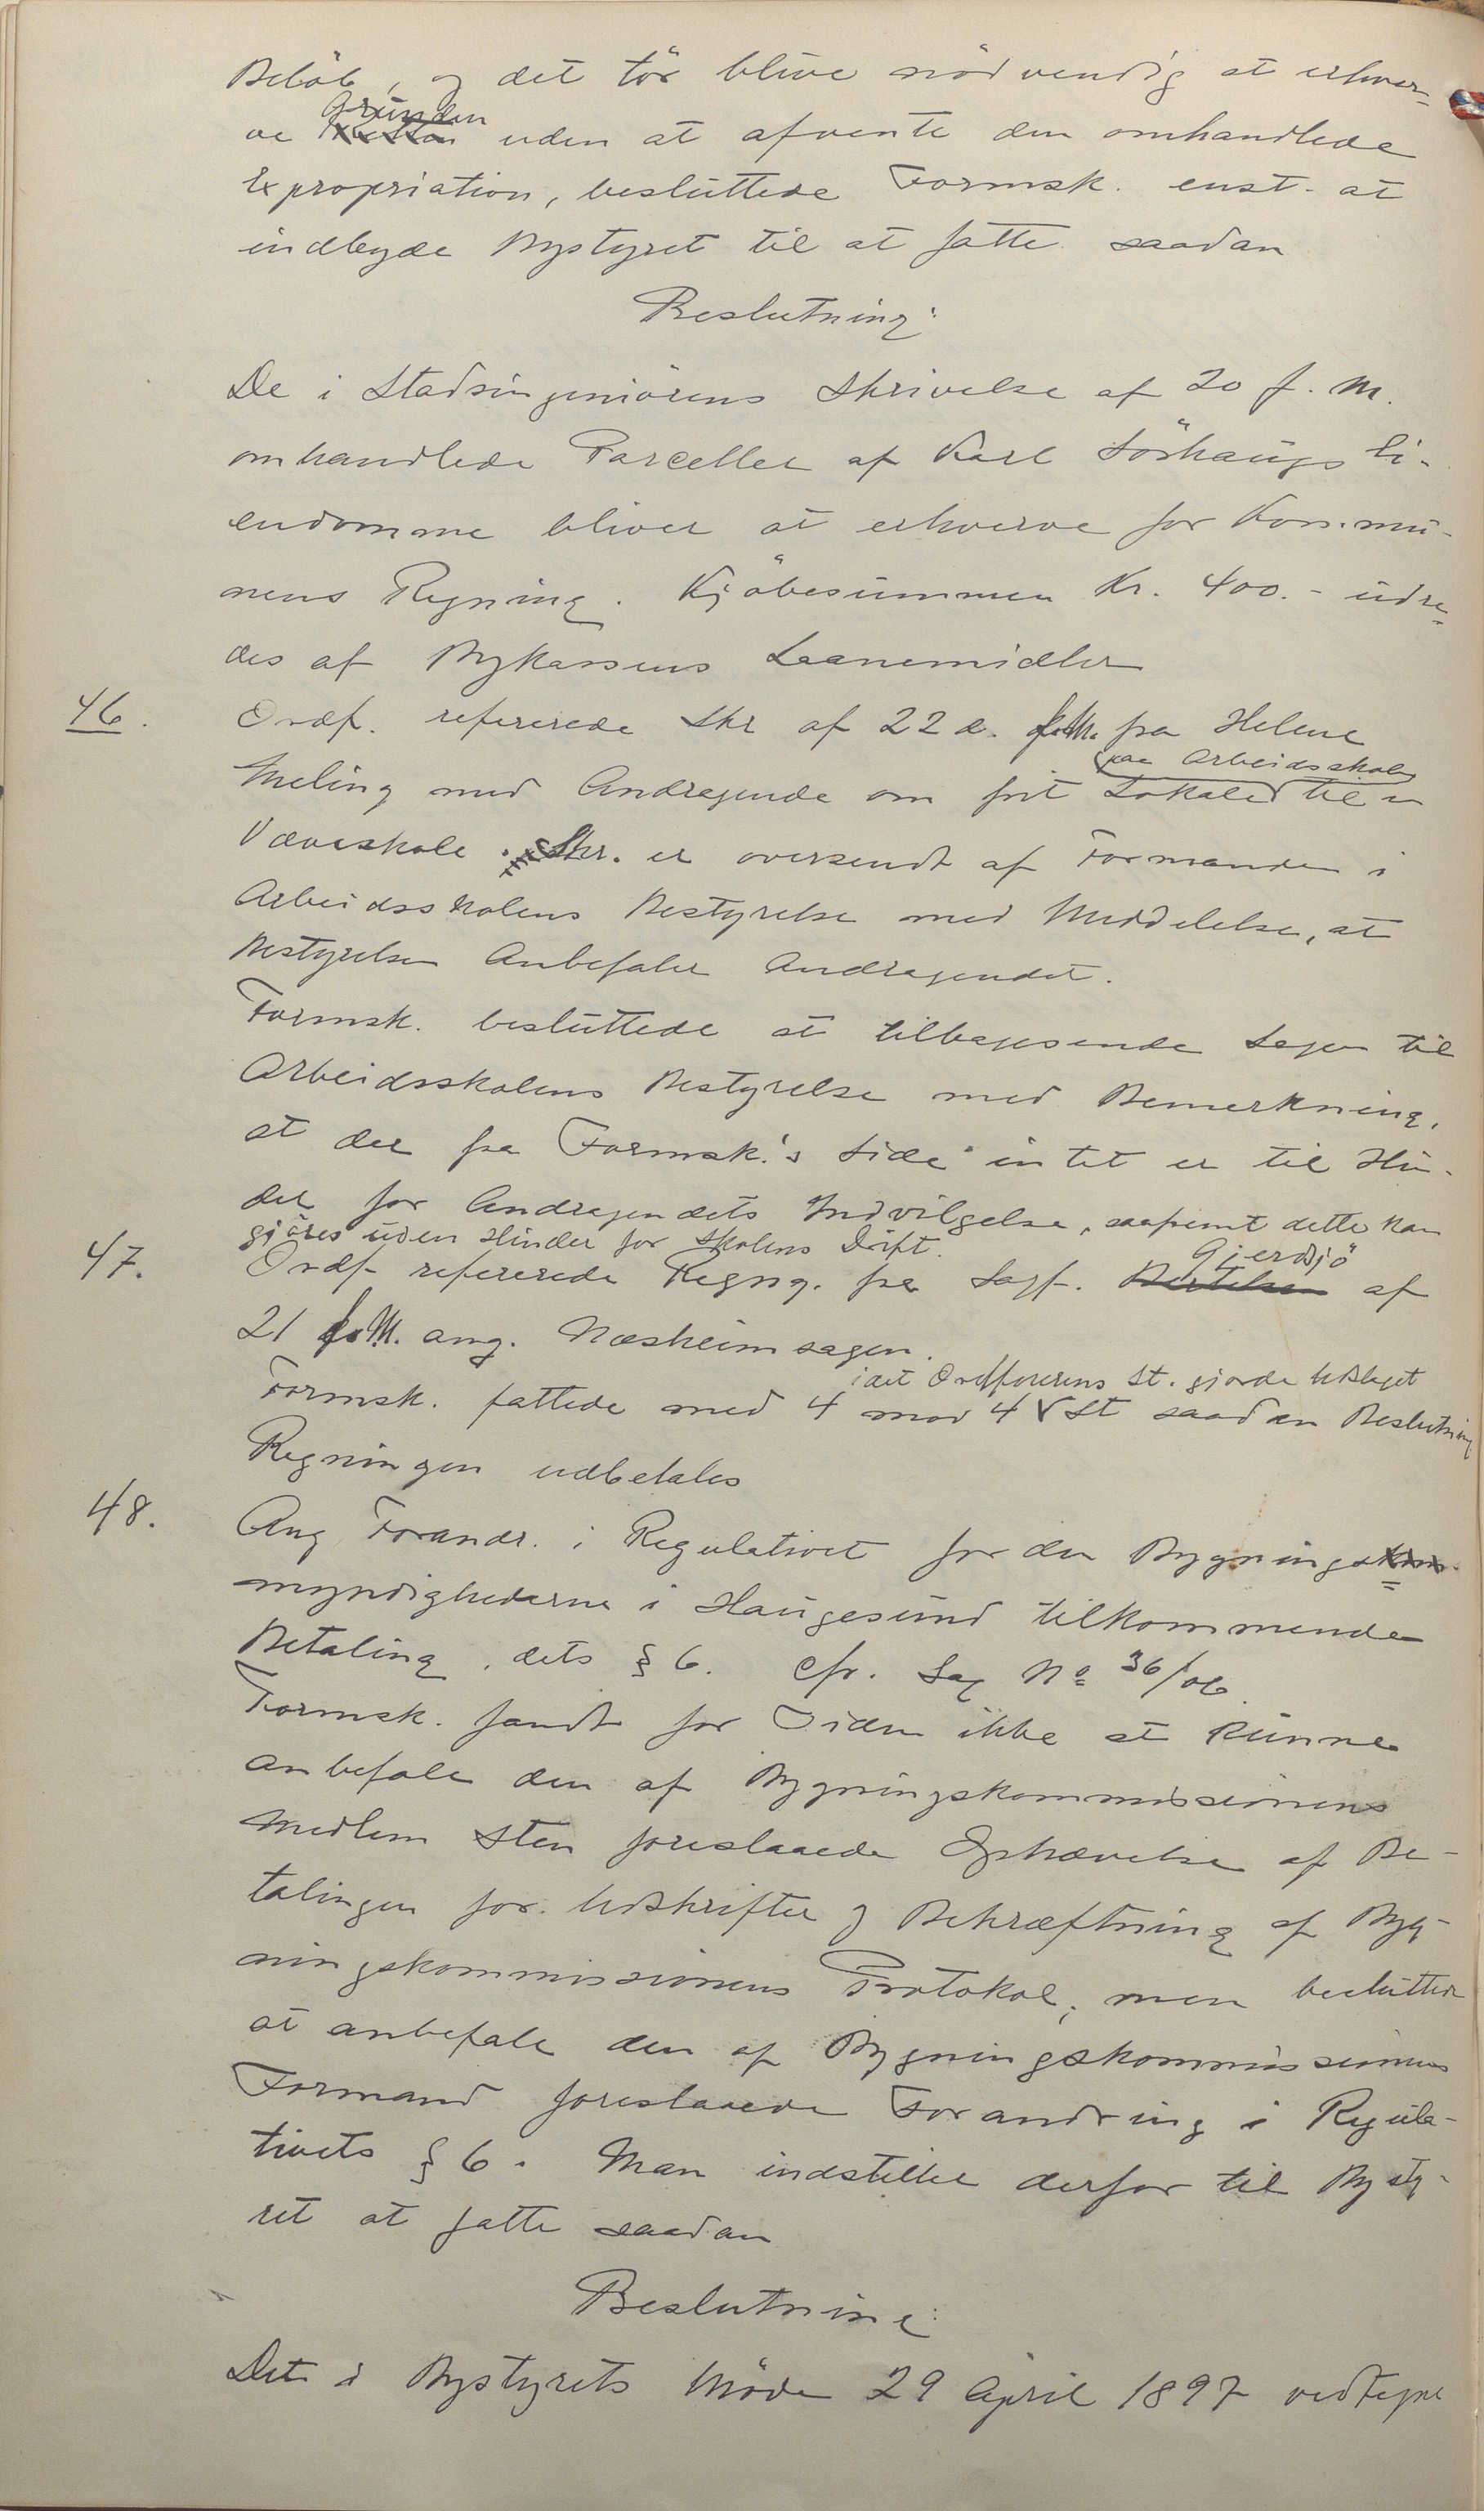 Beløb, og det tör blive nödvendig at erhver-
ve Grunden uden at afvente den omhandlede
Expropriation, besluttede Formsk. enst. at
indbyde Bystyret til at fatte saadan
Beslutning:
De i Stadsingeniörens Skrivelse af 20 f. M.
omhandlede Parceller af Karl Sörhaugs Ei-
endomme bliver at erhverve for Kommu-
nens Regning. Kjöbesummen Kr. 400.- udre-
des af Bykassens Laanemidler
46. Ordf. refererede Skr af 22 d. f.M. fra Helene
paa Arbeidsskolen
Meling med Andragende om frit Lokale til en
Væveskole. Skr. er oversendt af Formanden i
Arbeidsskolens Bestyrelse med Meddelelse, at
Bestyrelsen Anbefaler Andragendet.
Formsk. besluttede at tilbagesende Sagen til
Arbeidsskolens Bestyrelse med Bemerkning,
at der fra Formsk.'s Side intet er til Hin-
der for Andragendets Indvilgelse, saafremt dette kan
gjöres uden Hinder for Skolens Drift.
47. Ordf. refererede Regng. fra Sagf. Gjerdsjö af
21 f.M. ang. Næsheimsagen.
idet Ordförerens St. gjorde Udslaget
Formsk. fattede med 4 mod 4 St saadan Beslutning
Regningen udbetales
48. Ang Forandr. i Regulativet for den Bygnings-
myndighederne i Haugesund tilkommende
Betaling, dets § 6. Cfr. Sag No 36/06
Formsk. fandt for Tiden ikke at kunne
anbefale den af Bygningskommissionens
Medlem Sten foreslaaede Ophævelse af Be-
talingen for Udskrifter og Bekræftning af Byg-
ningskommissionens Protokol, men beslutted
at anbefale den af Bygningskommissionens
Formand foreslaaede Forandring i Regula-
tivets § 6. Man indstiller derfor til Bysty-
ret at fatte saadan
Beslutning:
Det i Bystyrets Möde 29 April 1897 vedtagne